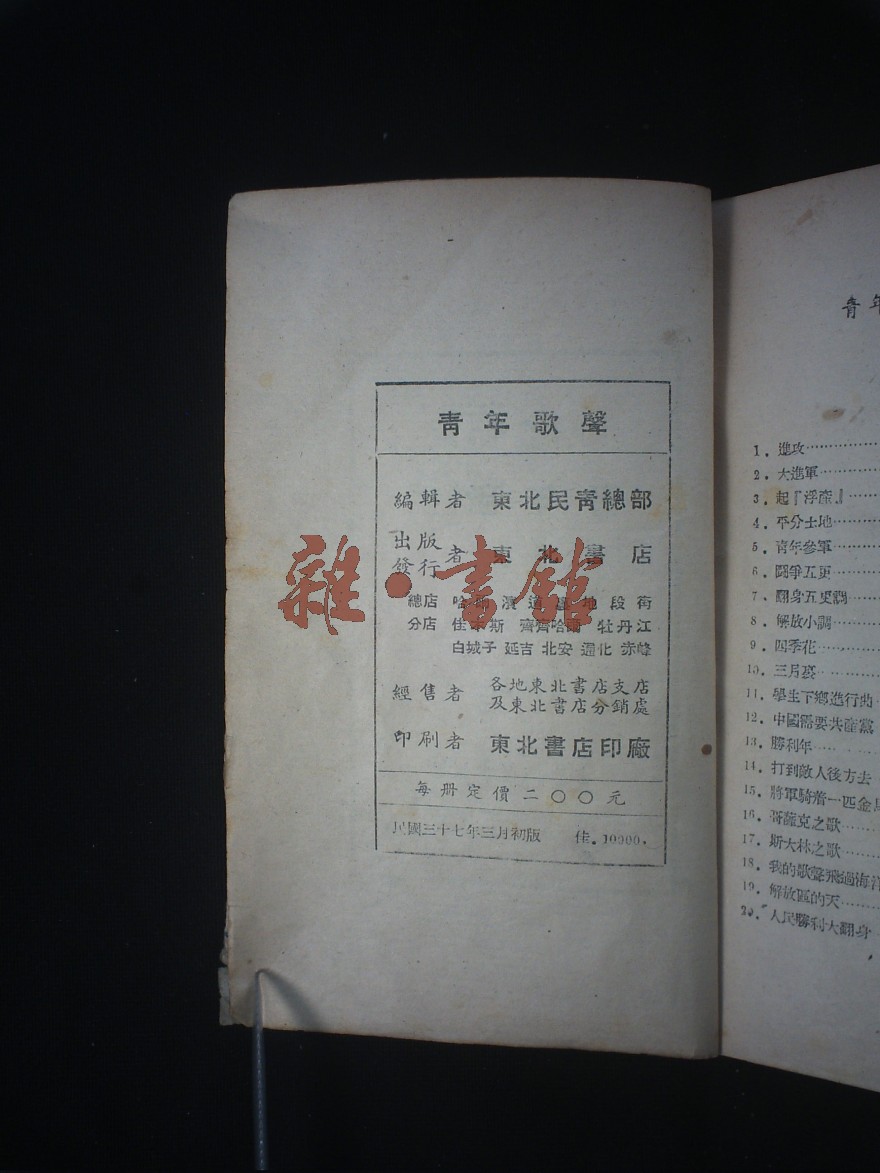 青年歌聲
編輯者 東北民青總部
出版
發行者 東北書店
總店 哈爾濱道裡地段街
分店 佳木斯 齊齊哈爾 牡丹江
白城子 延吉 北安 通化 赤峰
經售者 各地東北書店支店
及東北書店分銷處
印刷者 東北書店印廠
每册定價二〇〇元
民國三十七年三月初版 佳.10000.
雜·書館
青年
1.進攻
2.大進軍
3.起『浮產』
4.平分土地
5.青年參軍
6.鬪爭五更
7.翻身五更調
8.解放小調
9.四季花
10.三月裏
11.學生下鄉進行曲
12.中國需要共產黨
13.勝利年
14.打到敵人後方去
15.將軍騎着一匹金馬
16.哥薩克之歌
17.斯大林之歌
18.我的歌聲飛過海洋
19.解放區的天
20.人民勝利大翻身